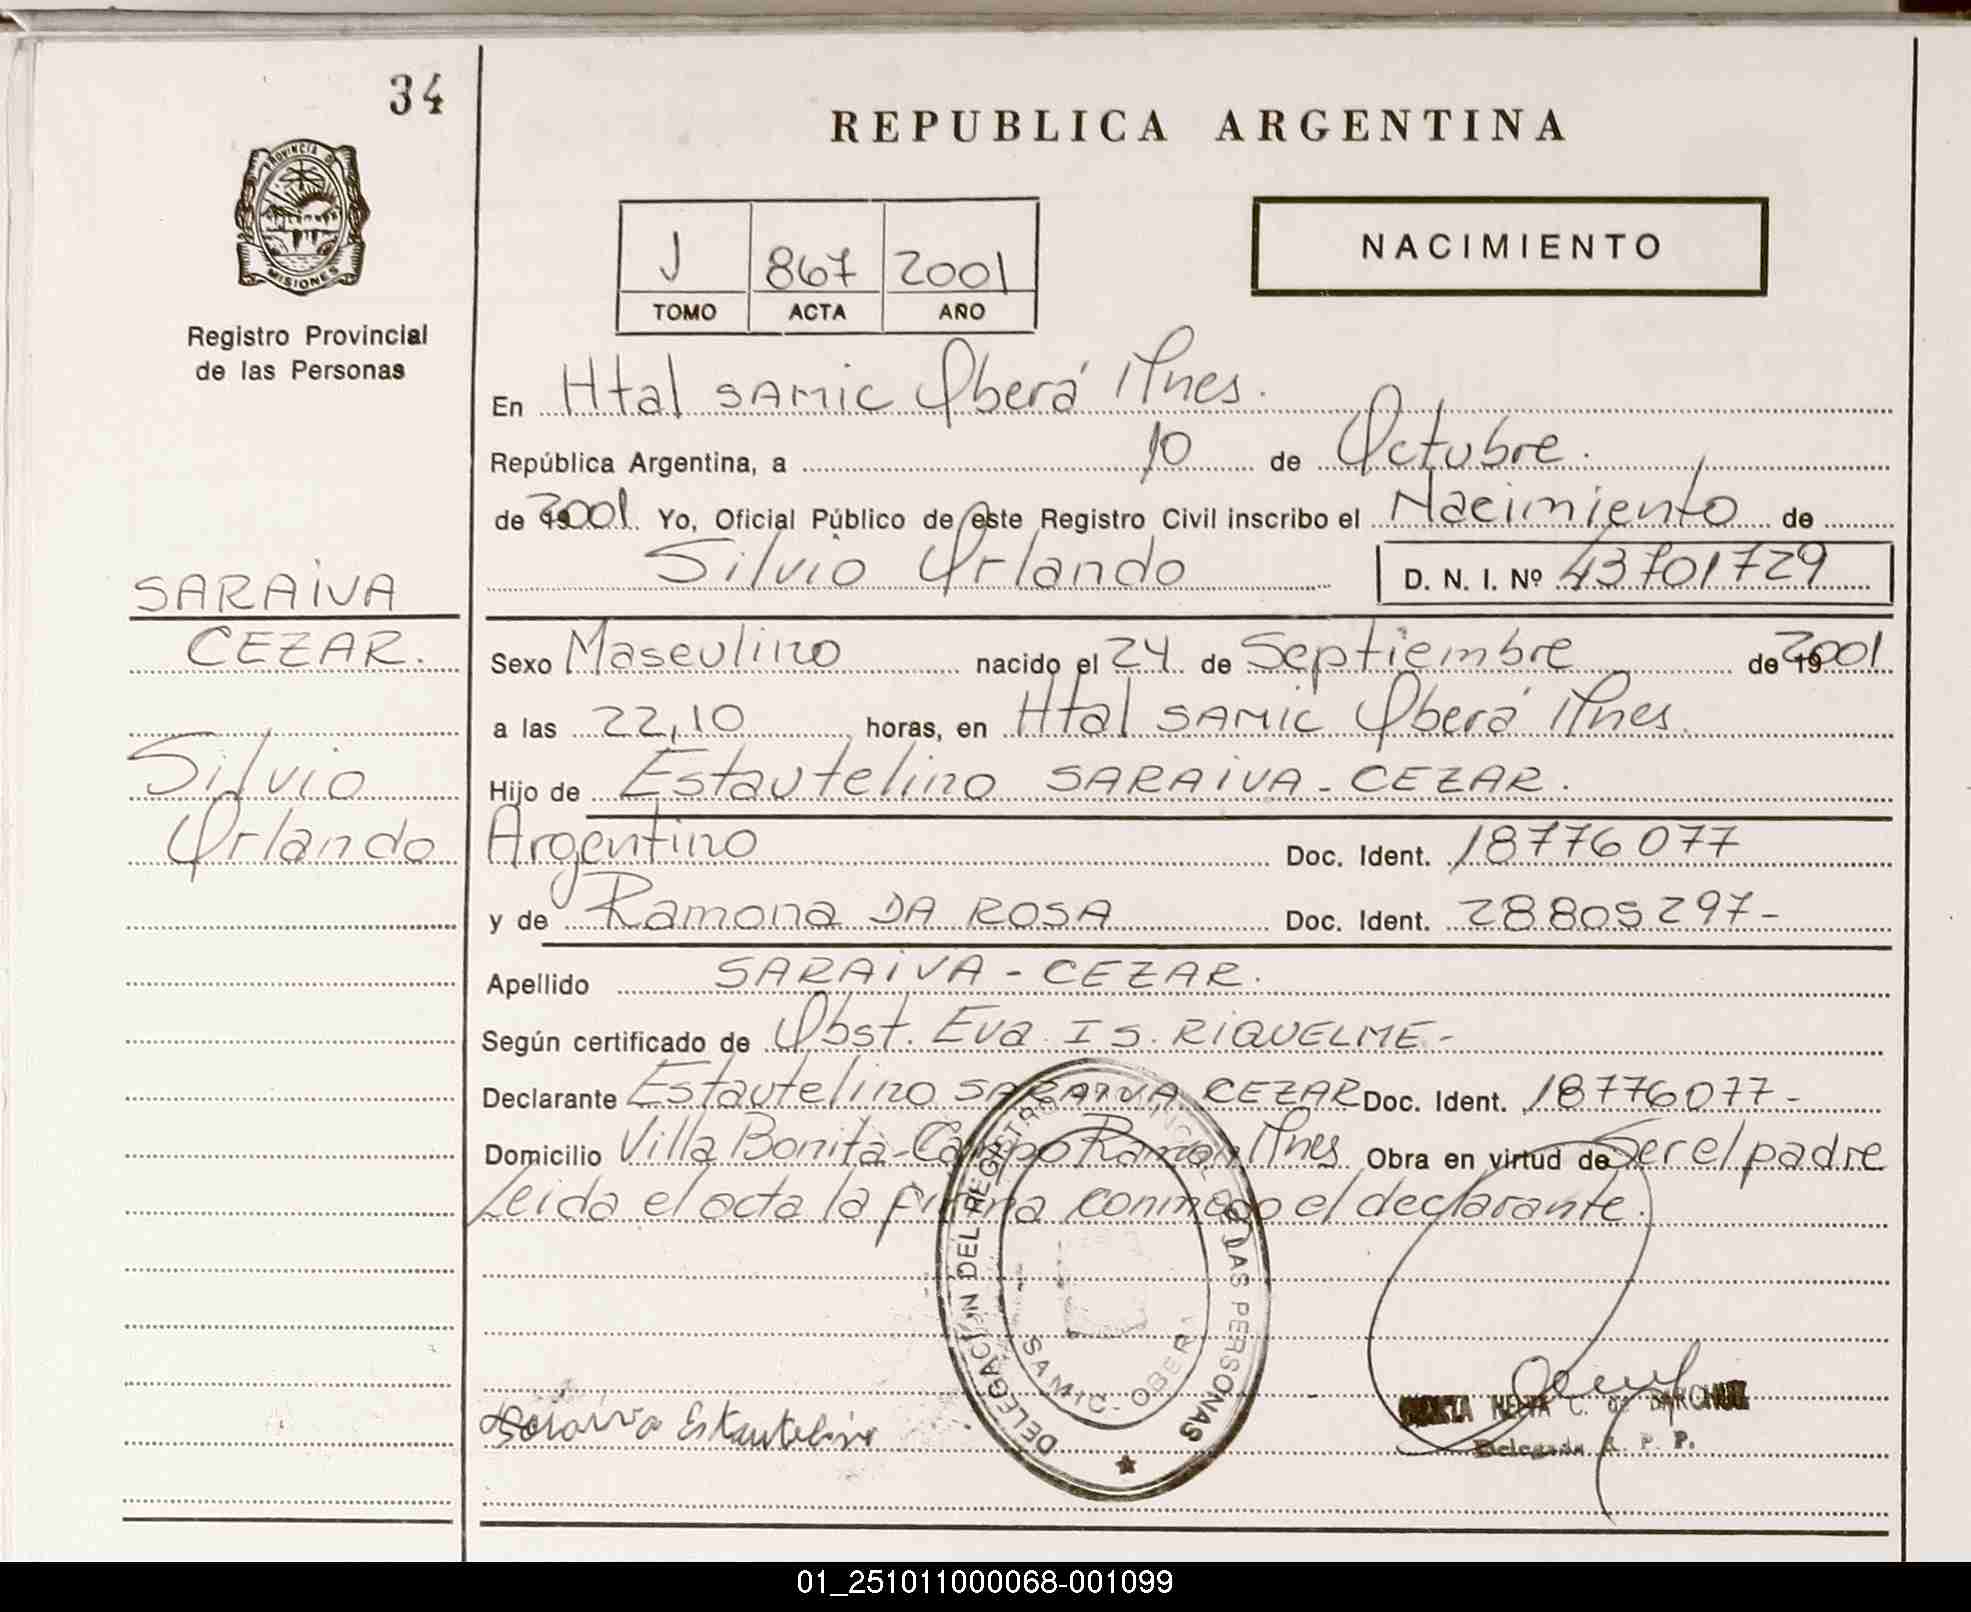 34
REPUBLICA ARGENTINA
PROVINCIA DE
MISIONES
Registro Provincial
de las Personas
J 867 2001
TOMO ACTA AÑO
NACIMIENTO
En Htal SAMIC Oberá Mnes.
República Argentina, a 10 de Octubre.
de 2001 Yo, Oficial Público de este Registro Civil inscribo el Nacimiento de
Silvio Orlando D. N. I. Nº 43701729
SARAIVA
CEZAR.
Silvio
Orlando
Sexo Masculino nacido el 24 de Septiembre de 2001
a las 22,10 horas, en Htal SAMIC Oberá Mnes.
Hijo de Estautelino SARAIVA - CEZAR.
Argentino Doc. Ident. 18776077
y de Ramona DA ROSA Doc. Ident. 28805297-
Apellido SARAIVA - CEZAR.
Según certificado de Obst. Eva IS. RIQUELME-
Declarante Estautelino SARAIVA CEZAR Doc. Ident. 18776077-
Domicilio Villa Bonita-Campo Ramon Mnes Obra en virtud de Ser el padre
Leida el acta la firma conmigo el declarante.
DELEGACIÓN DEL REGISTRO PROVINCIAL DE LAS PERSONAS
SAMIC - OBERA
Saraiva Estautelino
C. de
Delegada R. P. P.
01_251011000068-001099